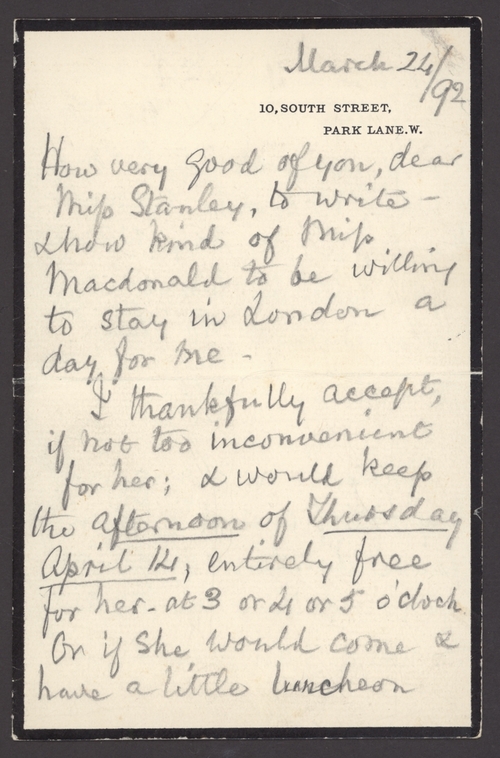 March 24/92
10, SOUTH STREET,
PARK LANE. W.
How very good of you, dear
Miss Stanley, to write -
& how kind of Miss
Macdonald to be willing
to stay in London a
day for me -
I thankfully accept,
if not too inconvenient
for her; & would keep
the afternoon of Thursday
April 14, entirely free
for her - at 3 or 4 or 5 o'clock
Or if she would come &
have a little luncheon